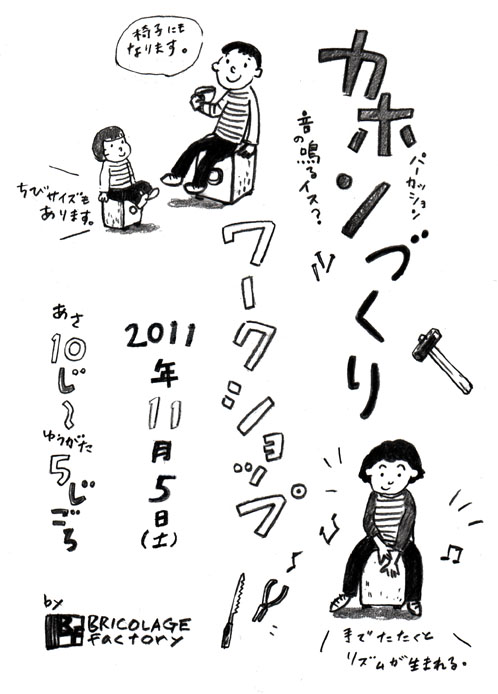 カホンづくり
パーカッション
音の鳴るイス?
ワークショップ
椅子にも
なります。
ちびサイズも
あります。
2011年11月5日(土)
あさ
10じ~
ゆうがた
5じごろ
by
BF
BRICOLAGE
Factory
手でたたくと
リズムが生まれる。